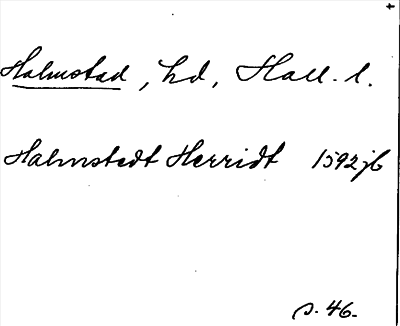 Halmstad, hd, Hall. l.
Halmstedt Herridt 1592 jb
s. 46.